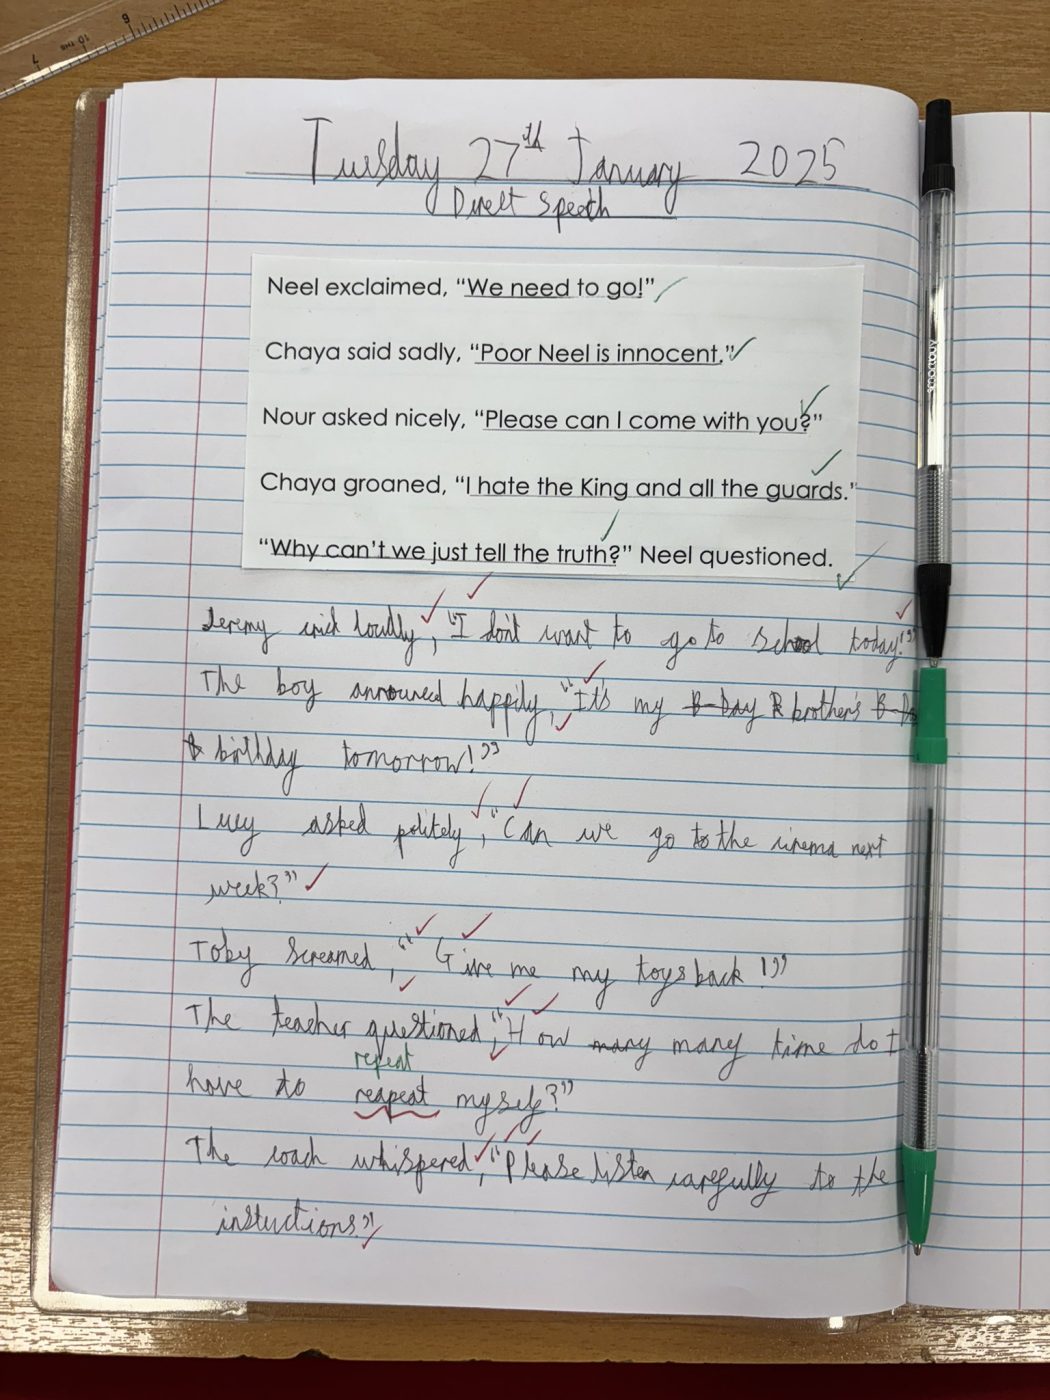 Tuesday 27th January 2025
Direct Speech
Neel exclaimed, “We need to go!”
Chaya said sadly, “Poor Neel is innocent.”
Nour asked nicely, “Please can I come with you?”
Chaya groaned, “I hate the King and all the guards.”
“Why can’t we just tell the truth?” Neel questioned.
Jeremy cried loudly, “I don't want to go to school today!”
The boy announced happily, “It's my B-Day brother's
birthday tomorrow!”
Lucy asked politely, “Can we go to the cinema next
week?”
Toby screamed, “Give me my toys back!”
The teacher questioned, “How many many time do I
repeat
have to reapeat myself?”
The coach whispered, “Please listen carefully to the
instuctions.”